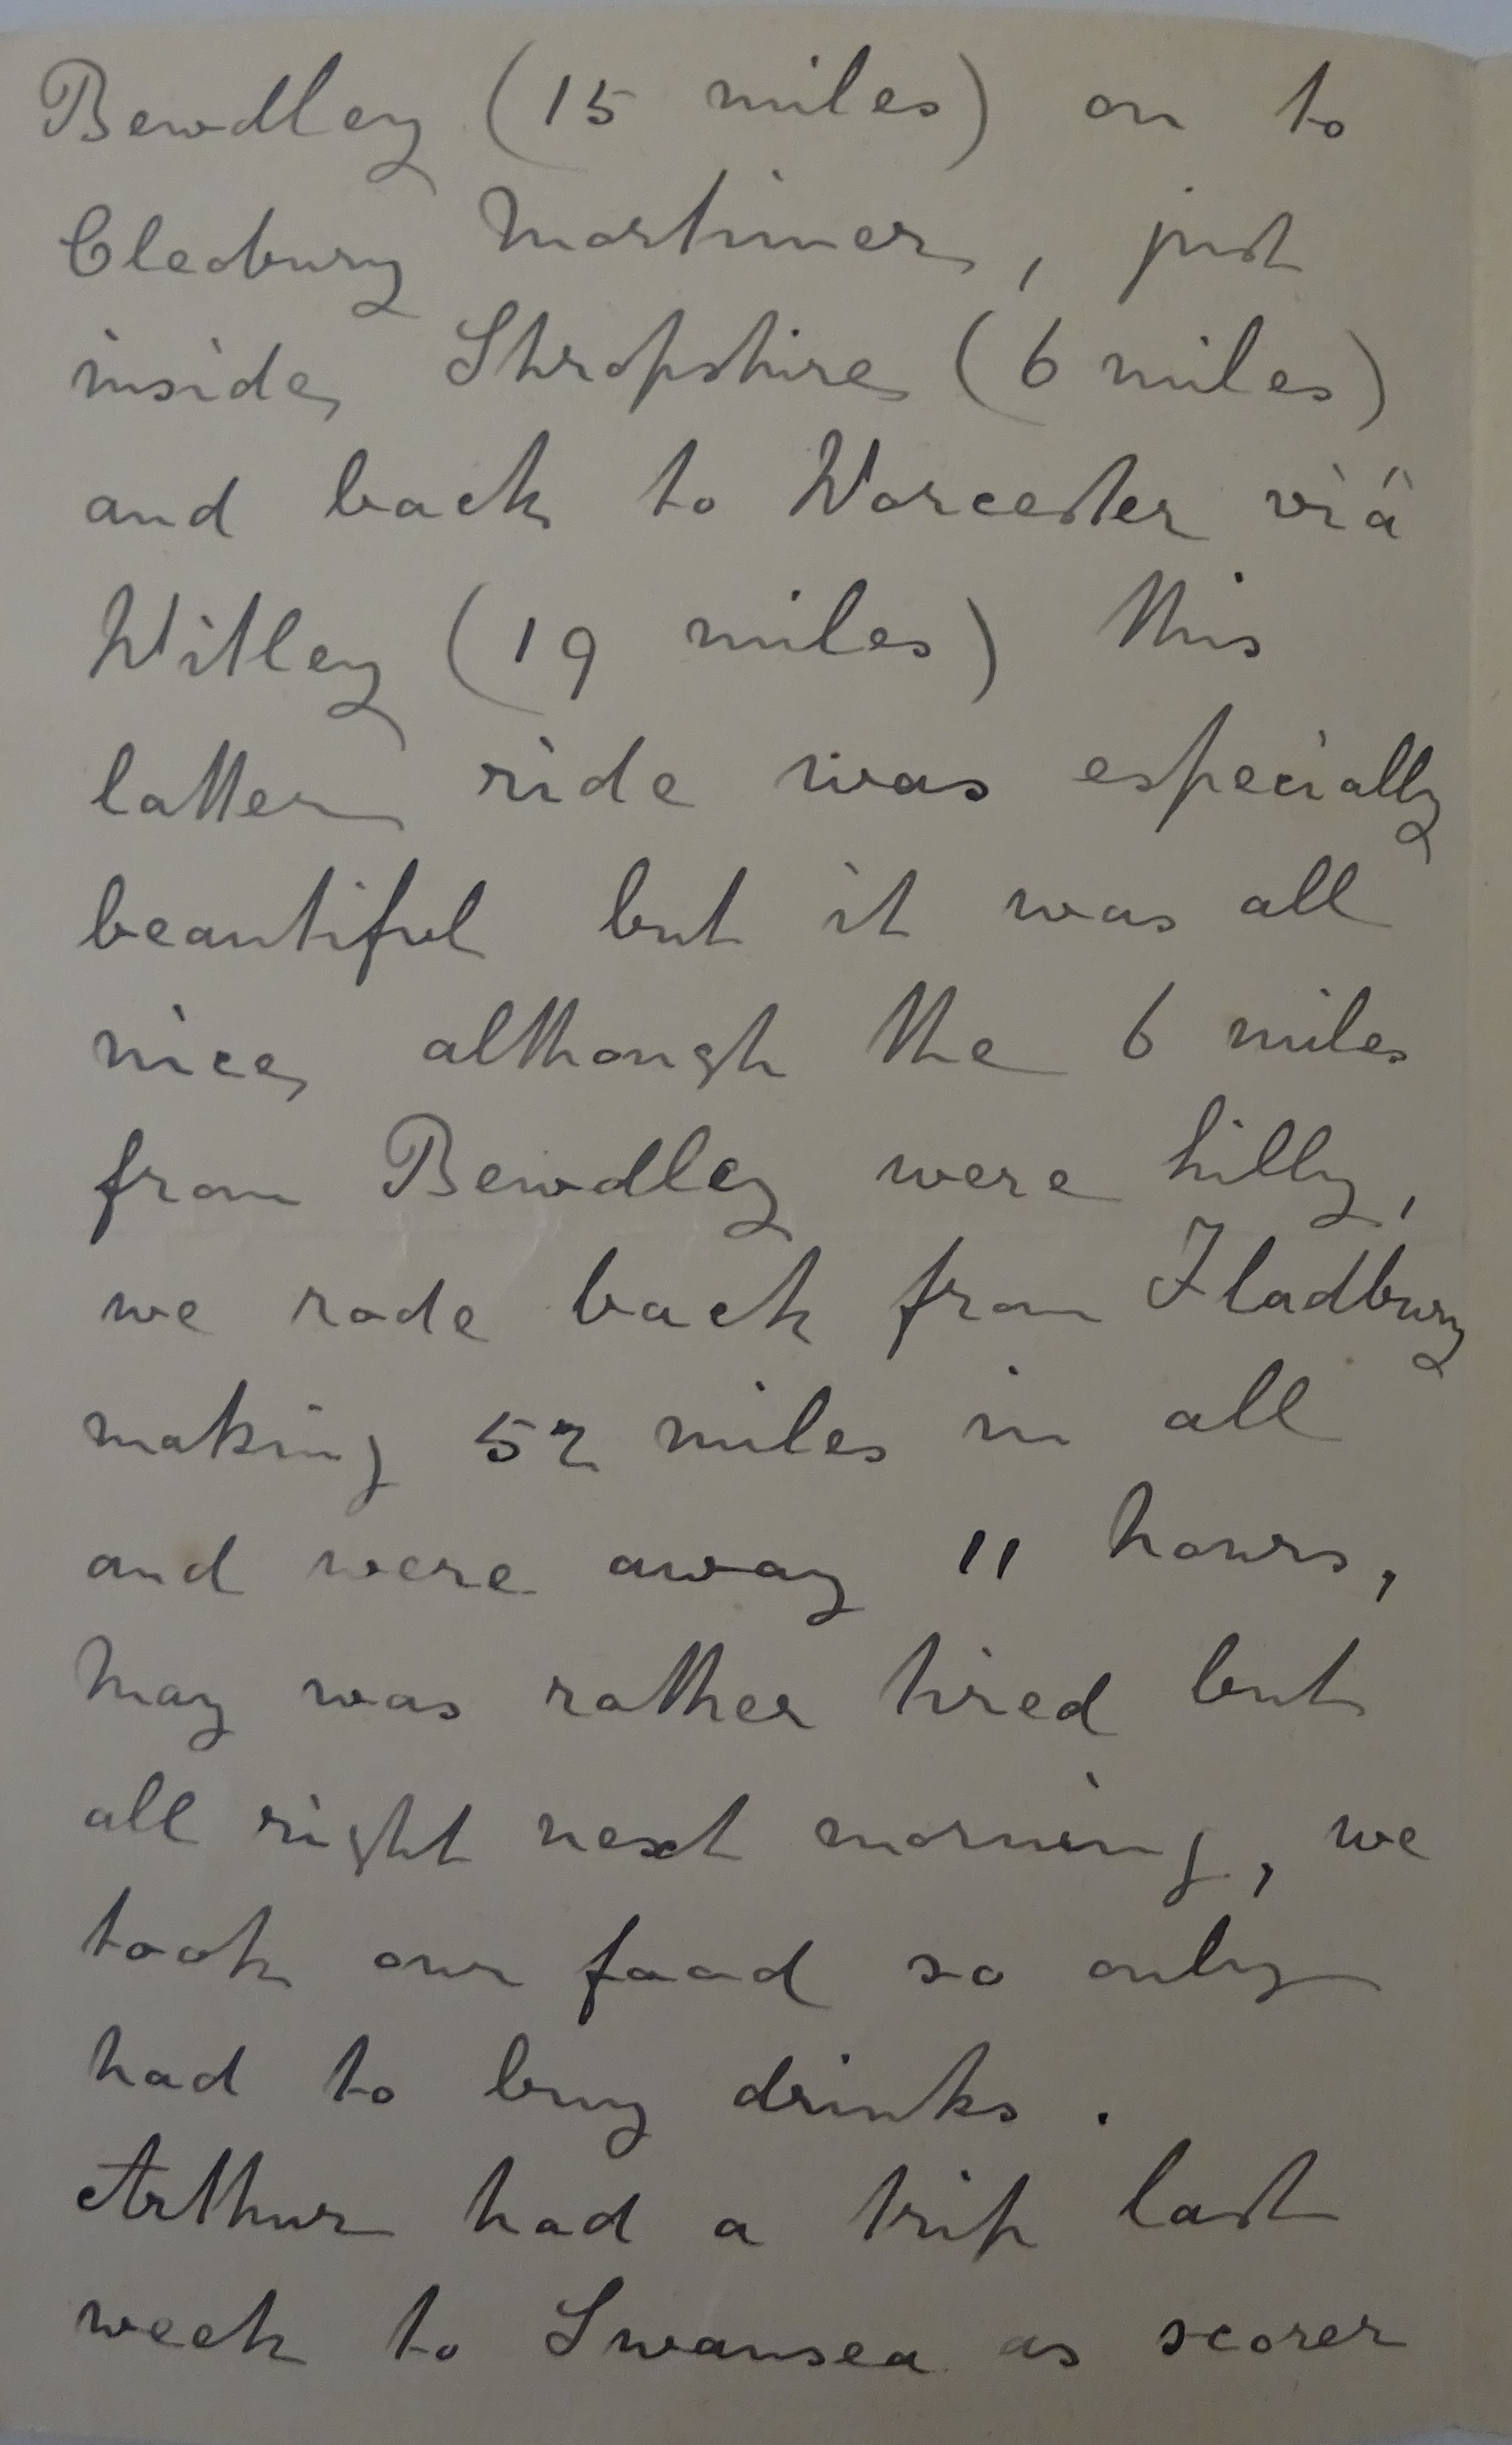 Bewdley (15 miles) on to
Cleobury Mortimer, just
inside Shropshire (6 miles)
and back to Worcester viâ
Witley (19 miles) this
latter ride was especially
beautiful but it was all
nice although the 6 miles
from Bewdley were hilly,
we rode back from Fladbury
making 52 miles in all
and were away 11 hours,
May was rather tired but
all right next morning, we
took our food so only
had to buy drinks.
Arthur had a trip last
week to Swansea as scorer